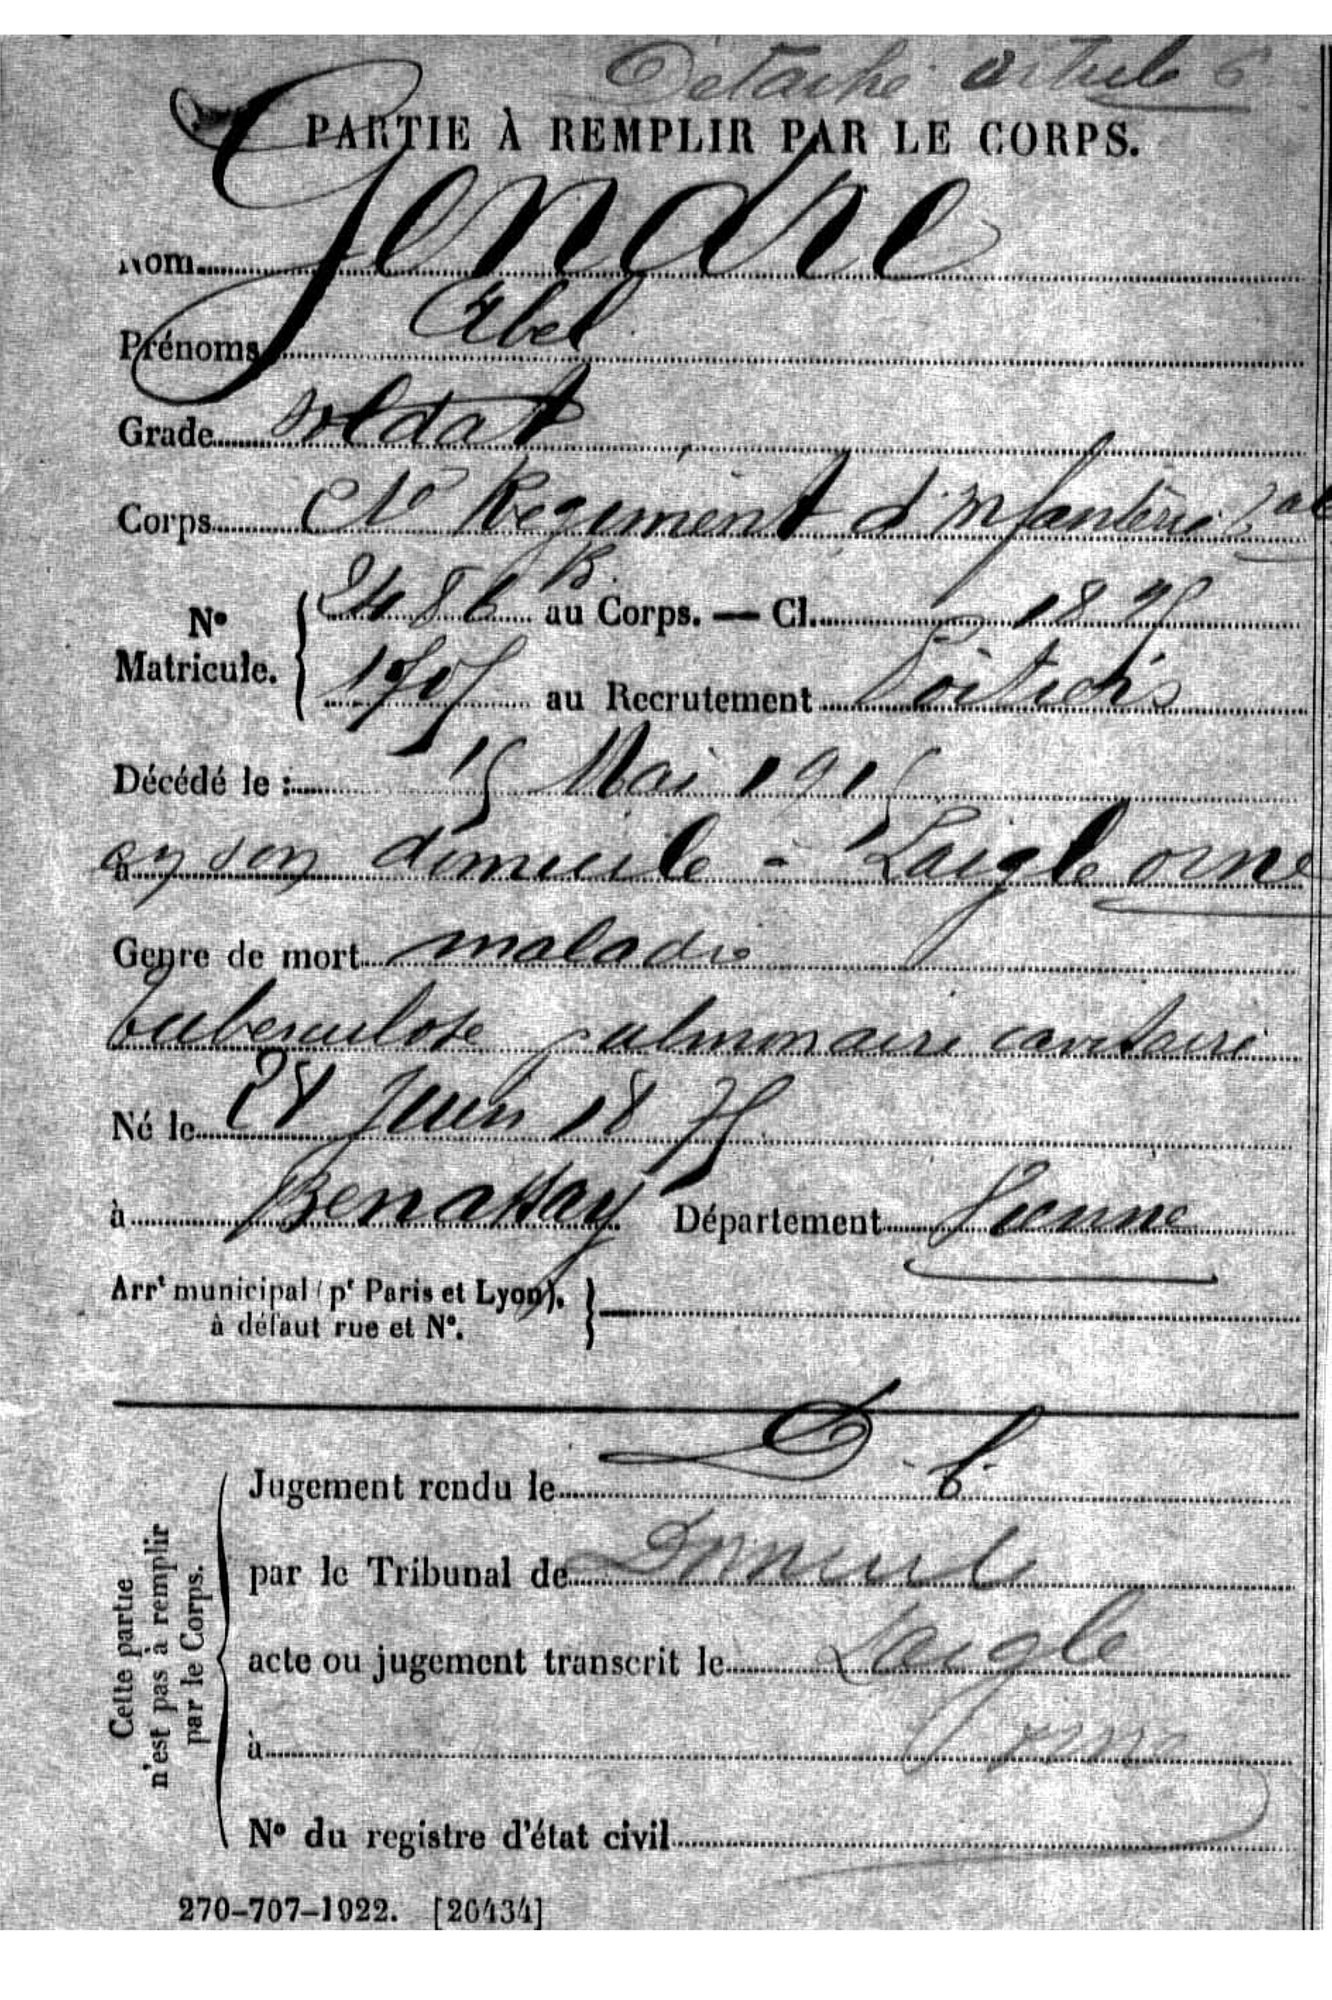 Détaché article 6
PARTIE À REMPLIR PAR LE CORPS.
Nom Gendre
Prénoms Abel
Grade soldat
Corps Régiment d'Infanterie
N° Matricule. 2486 B. au Corps. — Cl. 1895
1707 au Recrutement Poitiers
Décédé le : 15 Mai 1915
à en son domicile - Laigle orne
Genre de mort maladie
tuberculose pulmonaire cavitaire
Né le 28 Juin 1875
à Benassay Département Vienne
Arrt municipal (pr Paris et Lyon),
à défaut rue et N°.
Cette partie n'est pas à remplir par le Corps.
Jugement rendu le D. C.
par le Tribunal de Domicile
acte ou jugement transcrit le Laigle
à orne
N° du registre d'état civil
270-707-1922. [26434]